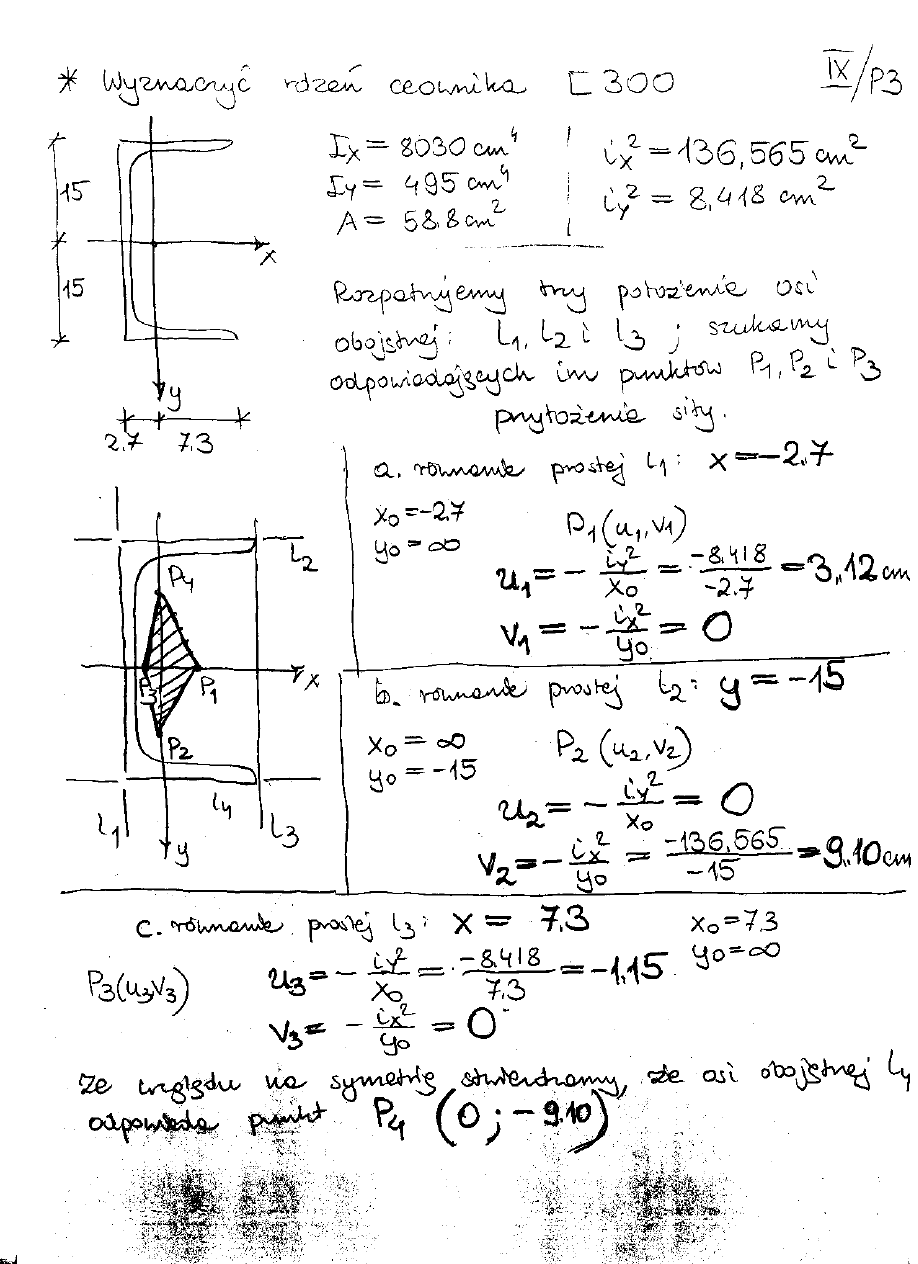 * Wyznaczyć rdzeń ceownika [ 300
IX/P3
15
15
x
y
2.7 7.3
Ix = 8030 cm⁴
Iy = 495 cm⁴
A = 58.8 cm²
ix² = 136,565 cm²
iy² = 8,418 cm²
Rozpatrujemy trzy położenie osi
obojętnej: l1, l2 i l3 ; szukamy
odpowiadających im punktów P1, P2 i P3
przyłożenia siły.
a. równanie prostej l1: x = -2.7
x0 = -2.7
y0 = ∞
P1 (u1, v1)
u1 = - iy²/x0 = -8.418/-2.7 = 3,12 cm
v1 = - ix²/y0 = 0
l2
P4
x
P3 P1
P2
l4
l1
l3
y
b. równanie prostej l2: y = -15
x0 = ∞
y0 = -15
P2 (u2, v2)
u2 = - iy²/x0 = 0
v2 = - ix²/y0 = -136,565/-15 = 9.10 cm
c. równanie prostej l3: x = 7.3
x0 = 7.3
y0 = ∞
P3(u3, v3)
u3 = - iy²/x0 = -8.418/7.3 = -1.15
v3 = - ix²/y0 = 0
Ze względu na symetrię stwierdzamy, że osi obojętnej l4
odpowiada punkt P4 (0 ; -9.10)